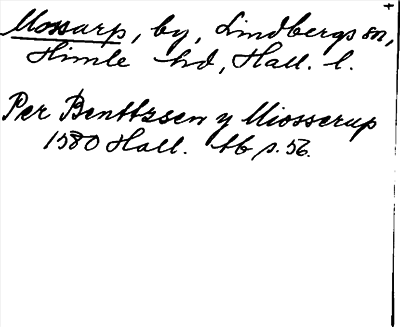 Mossarp, by, Lindbergs sn,
Himle hd, Hall. l.
Per Benttzsen y Miosserup
1580 Hall. tb p. 56.